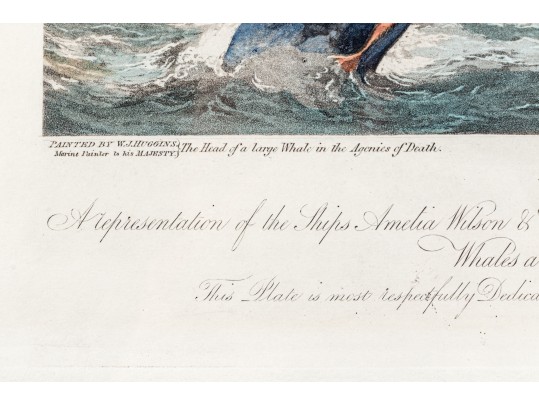 PAINTED BY W.J. HUGGINS,
Marine Painter to his MAJESTY.
The Head of a large Whale in the Agonies of Death.
A representation of the Ships Amelia Wilson &
Whales a
This Plate is most respectfully Dedica